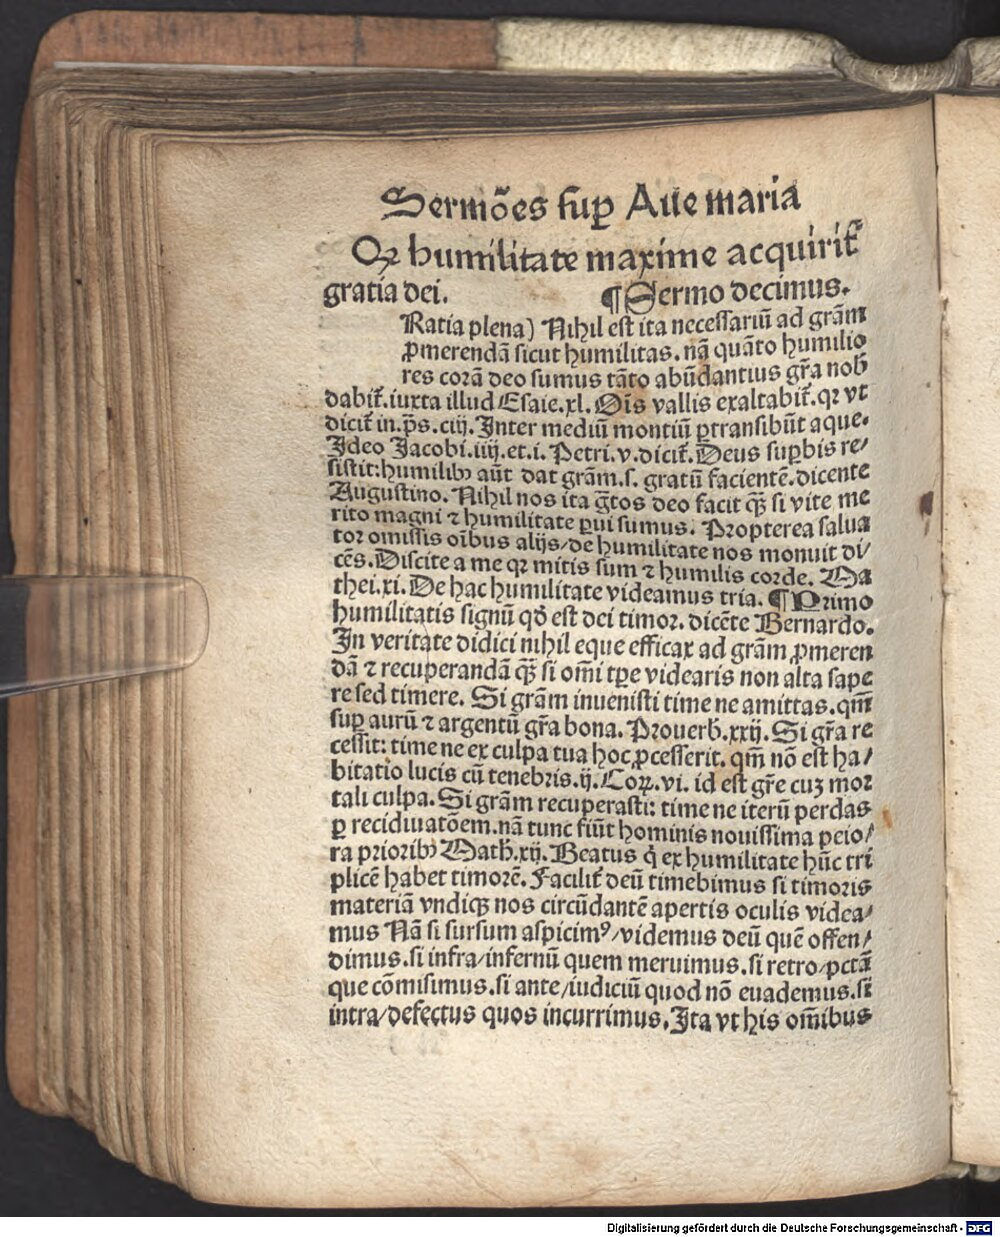 Sermões sup Aue maria
Qꝛ humilitate maxime acquirit᷑
gratia dei. ¶ Sermo decimus.
Ratia plena) Nihil est ita necessariũ ad grãm
ꝓmerendã sicut humilitas. nã quãto humilio
res corã deo sumus tãto abũdantius gr̃a nob̃
dabit᷑. iuxta illud Esaie.xl. Oĩs vallis exaltabit᷑. qꝛ vt
dicit᷑ in.p̃s.ciij. Inter mediũ montiũ ꝑtransibũt aque.
Ideo Jacobi.iiij.et.i. Petri.v.dicit᷑. Deus suꝑbis re/
sistit: humilibꝰ aũt dat grãm.s. gratũ facientẽ. dicente
Augustino. Nihil nos ita g̃tos deo facit q̃ꝫ si vite me
rito magni ⁊ humilitate ꝑui sumus. Propterea salua
tor omissis oĩbus alijs/de humilitate nos monuit di/
cẽs. Discite a me qꝛ mitis sum ⁊ humilis corde. Ma
thei.xi. De hac humilitate videamus tria. ¶ Primo
humilitatis signũ qđ est dei timor. dicẽte Bernardo.
In veritate didici nihil eque efficax ad grãm ꝓmeren
dã ⁊ recuperandã q̃ꝫ si om̃i tꝑe videaris non alta sape
re sed timere. Si grãm inuenisti time ne amittas. qm̃
suꝑ aurũ ⁊ argentũ gr̃a bona. Prouerb̃.xxij. Si gr̃a re
cessit: time ne ex culpa tua hoc ꝓcesserit. qm̃ nõ est ha/
bitatio lucis cũ tenebris.ij. Coꝝ.vi. id est gr̃e cuꝫ mor
tali culpa. Si grãm recuperasti: time ne iterũ perdas
ꝑ recidiuatõem. nã tunc fiũt hominis nouissima peio/
ra prioribꝰ Math̃.xij. Beatus q̇ ex humilitate hũc tri
plicẽ habet timorẽ. Facilit᷑ deũ timebimus si timoris
materiã vndiqꝫ nos circũdantẽ apertis oculis videa/
mus Nã si sursum aspicimꝰ/videmus deũ quẽ offen/
dimus. si infra/infernũ quem meruimus. si retro/pctã
que cõmisimus. si ante/iudiciũ quod nõ euademus. si
intra/defectus quos incurrimus. Ita vt his om̃ibus
Digitalisierung gefördert durch die Deutsche Forschungsgemeinschaft - DFG